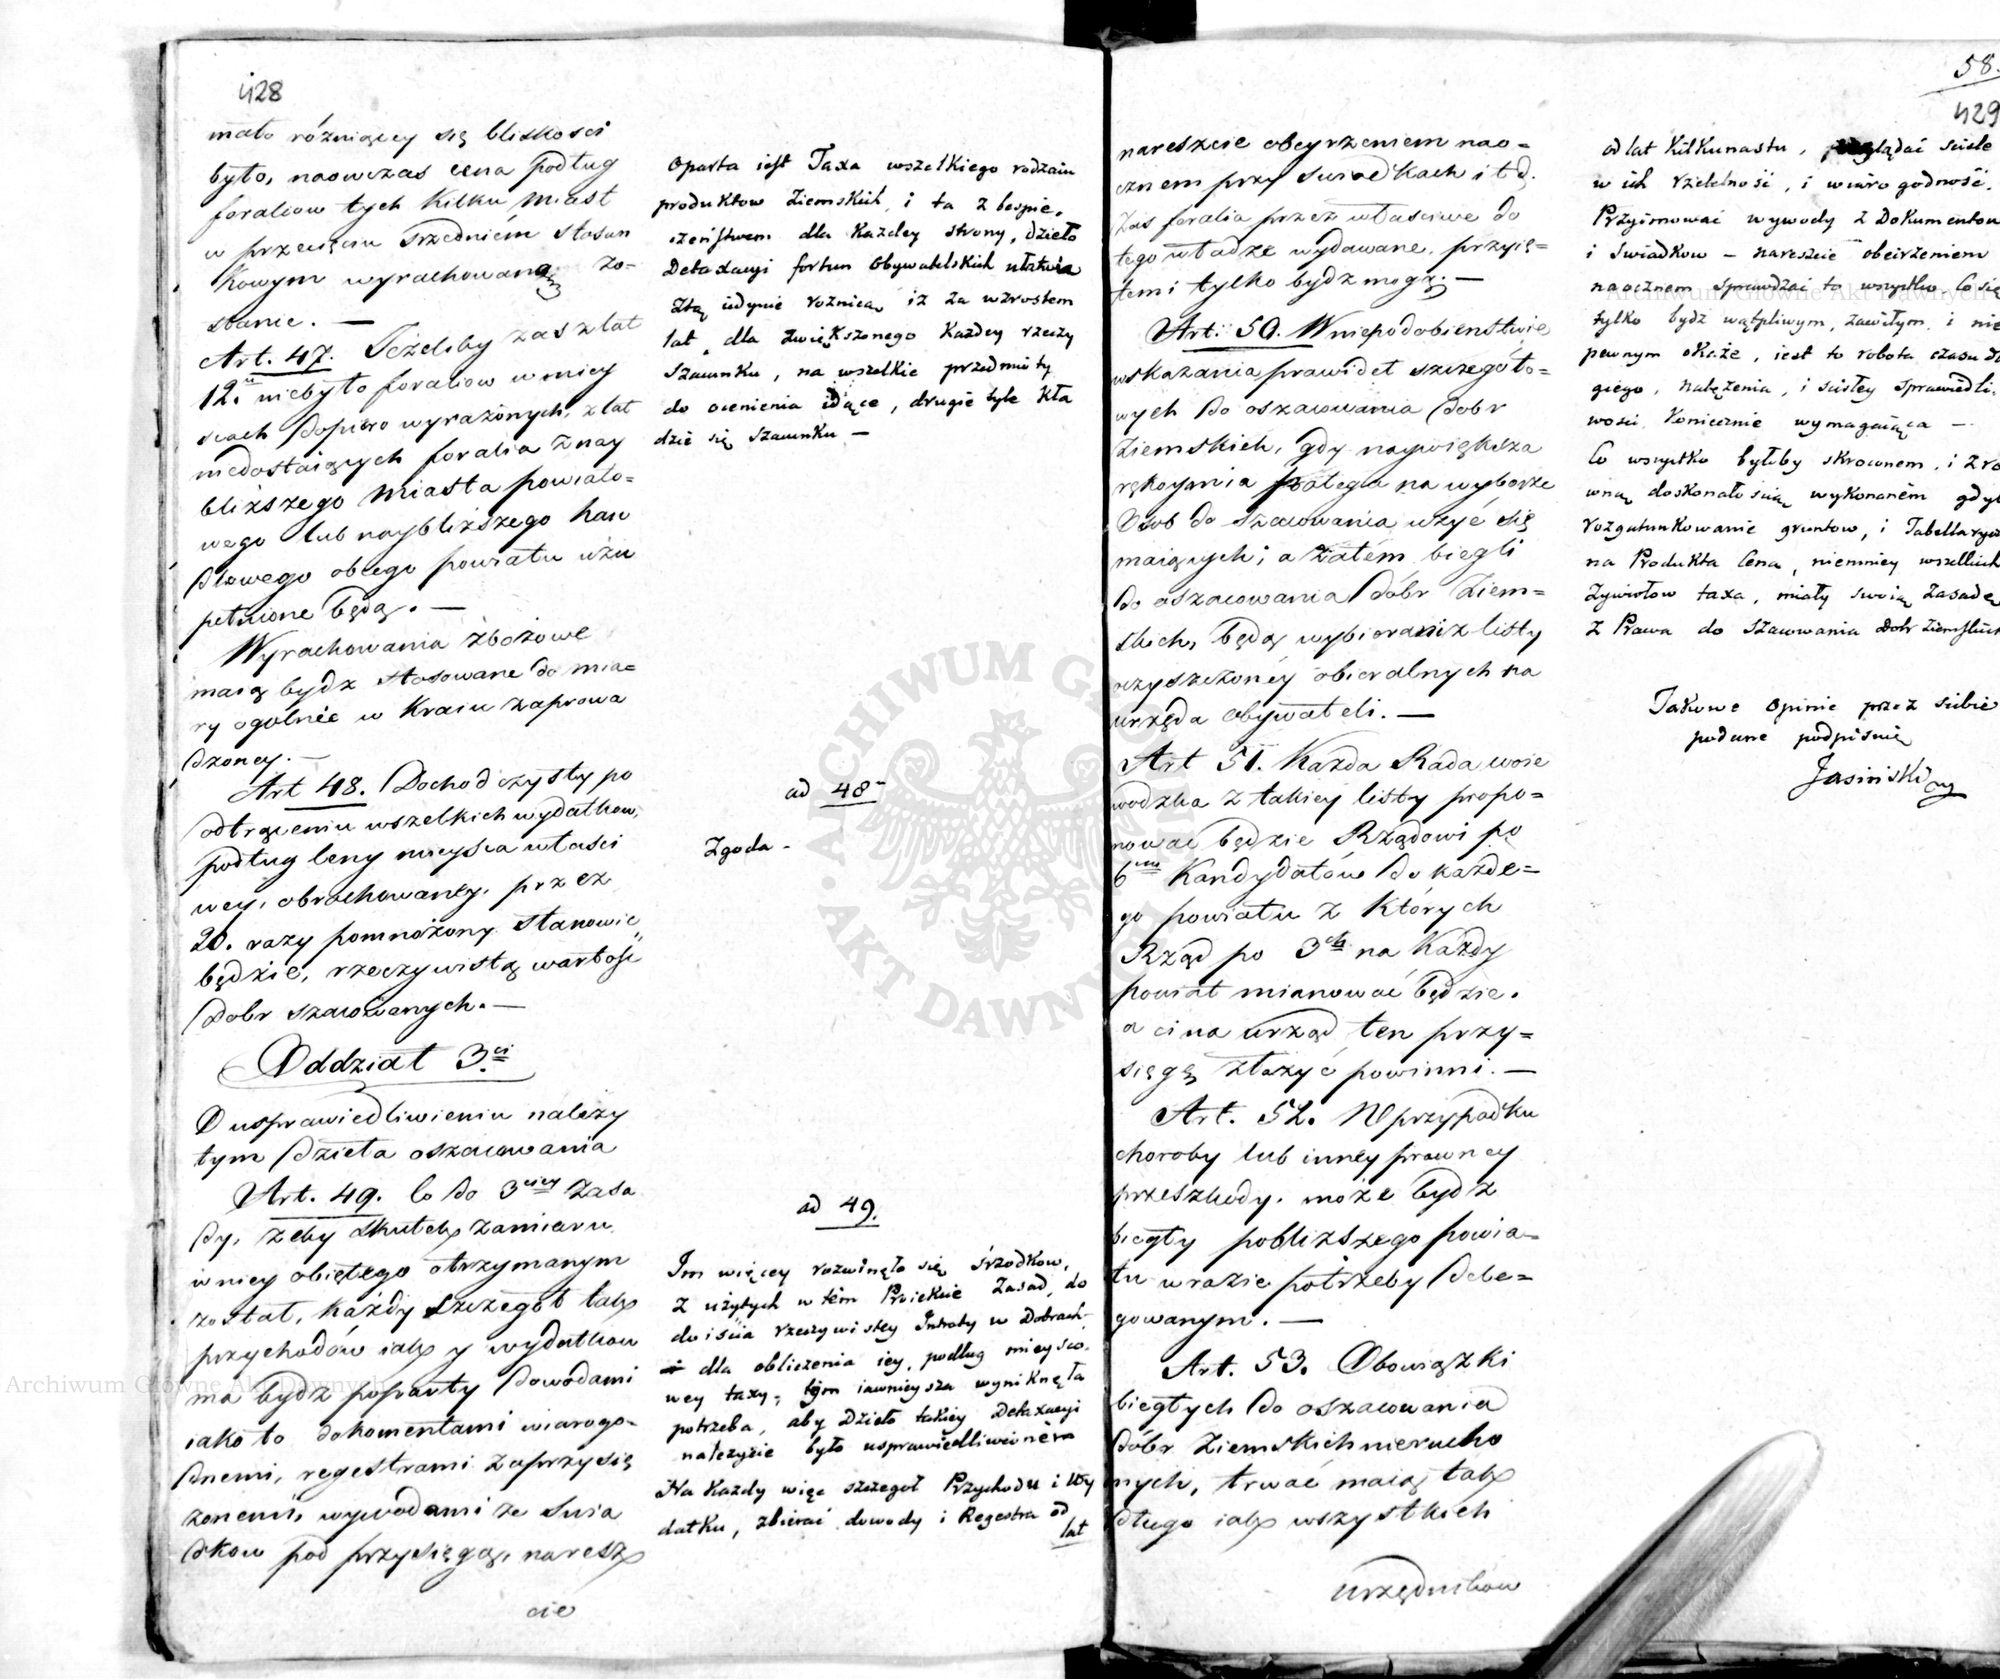 428
mało różniący się bliskości
było, naowczas cena podług
foraliow tych kilku miast
w przecięciu srzedniém stosun
kowym wyrachowaną zo-
stanie. —
Art. 47. Jeżeliby zaś z lat
12. niebyło foraliow w miey
scach dopiero wyrażonych, z lat
niedostaiących foralia z nay
bliższego miasta powiato=
wego lub naybliższego han
dlowego obcego powiatu uzu
pełnione będą. —
Wyrachowania zbożowe
maią bydź stosowane do mia=
ry ogólnie w Kraiu zaprowa
dzoney. —
Art 48. Dochod czysty po
odtrąceniu wszelkich wydatkow,
podług Ceny mieysca właści
wey, obrachowaney, przez
20. razy pomnożony stanowić
będzie, rzeczywistą wartość
Dobr szacowanych. —
Oddział 3ci
O usprawiedliwieniu należy
tym dzieła oszacowania
Art. 49. Co do 3ciey Zasa
dy, żeby skutek zamiaru
w niey obiętego otrzymanym
został, każdy szczegół tak
przychodów iak y wydatkow
ma bydź poparty dowodami
iako to dokumentami wiarogo-
dnemi, regestrami zaprzysię
żonemi, wywodami ze Swia
dkow pod przysięgą, naresz
cie
Oparta iest Taxa wszelkiego rodzaiu
produktow Ziemskich, i ta z bespie-
czeństwem dla Każdey strony, dzieło
Detaxacyi fortun Obywatelskich ułatwia
Ztą iedynie roznicą, iz za wzrostem
lat, dla zwiększonego Każdey rzeczy
Szacunku, na wszelkie przedmioty
do ocenienia idące, drugie tyle Kła
dzie się szacunku —
ad 48
Zgoda -
ad 49.
Im więcey rozwinęło się śrzodkow,
z użytych w tém Proiekcie Zasad, do
doiścia rzeczywistey Intraty w Dobrach
dla obliczenia iey, podług mieysco-
wey taxy, tym iawnieysza wyniknęła
potrzeba, aby Dzieło takiey Detaxacyi
należycie było usprawiedliwioném
Na Każdy więc szczegoł Przychodu i Wy
datku, zbierać dowody i Regestra od
lat
58.
429
nareszcie obeyrzeniem nao=
cznem przy swiadkach i t d.
Zaś foralia przez właściwe do
tego władze wydawane, przyię=
temi tylko bydź mogą. —
Art: 50. W niepodobieństwie
wskazania prawideł szczegóło=
wych do oszacowania Dobr
Ziemskich, gdy naywiększa
rękoymia polega na wyborze
Osob do szacowania użyć się
maiących; a zatém biegli
do oszacowania Dóbr Ziem=
skich, będą wybierani z listy
oczyszczoney obieralnych na
urzęda obywateli. —
Art 51. Każda Rada woie
wodzka z takiey listy propo=
nować będzie Rządowi po
6ciu Kandydatów do każde=
go powiatu z Których
Rząd po 3ch na Każdy
powiat mianować będzie.
a ci na urząd ten przy=
sięgę złożyć powinni. —
Art. 52. W przypadku
choroby lub inney prawney
przeszkody, może bydź
biegły pobliższego powia=
tu w razie potrzeby dele=
gowanym. —
Art. 53. Obowiązki
biegłych do oszacowania
dóbr Ziemskich nierucho
mych, trwać maią tak
długo iak wszystkich
urzędnikow
od lat Kilkunastu, wglądać ściśle
w ich rzetelność, i wiarogodność.
Przyimować wywody z Dokumentow
i Swiadkow — nareszcie obeirzeniem
naocznem sprawdzać to wszystko co się
tylko bydź wątpliwym, zawiłym, i nie
pewnym okaże, iest to robota czasu dł
giego, natężenia, i ścisłey sprawiedli-
wości Koniecznie wymagaiąca —
Co wszystko byłoby skróconem, i z ró
wną doskonałością wykonaném gdyb
rozgatunkowanie gruntow, i Tabellarycz
na Produkta Cena, niemniey wszelkich
Żywiołow taxa, miały swoią Zasadę
z Prawa do szacowania Dobr Ziemskich
Takowe Opinie przez siebie
podane podpisuię
Jasiński
ARCHIWUM GŁÓWNE AKT DAWNYCH
Archiwum Główne Akt Dawnych
Archiwum Główne Akt Dawnych